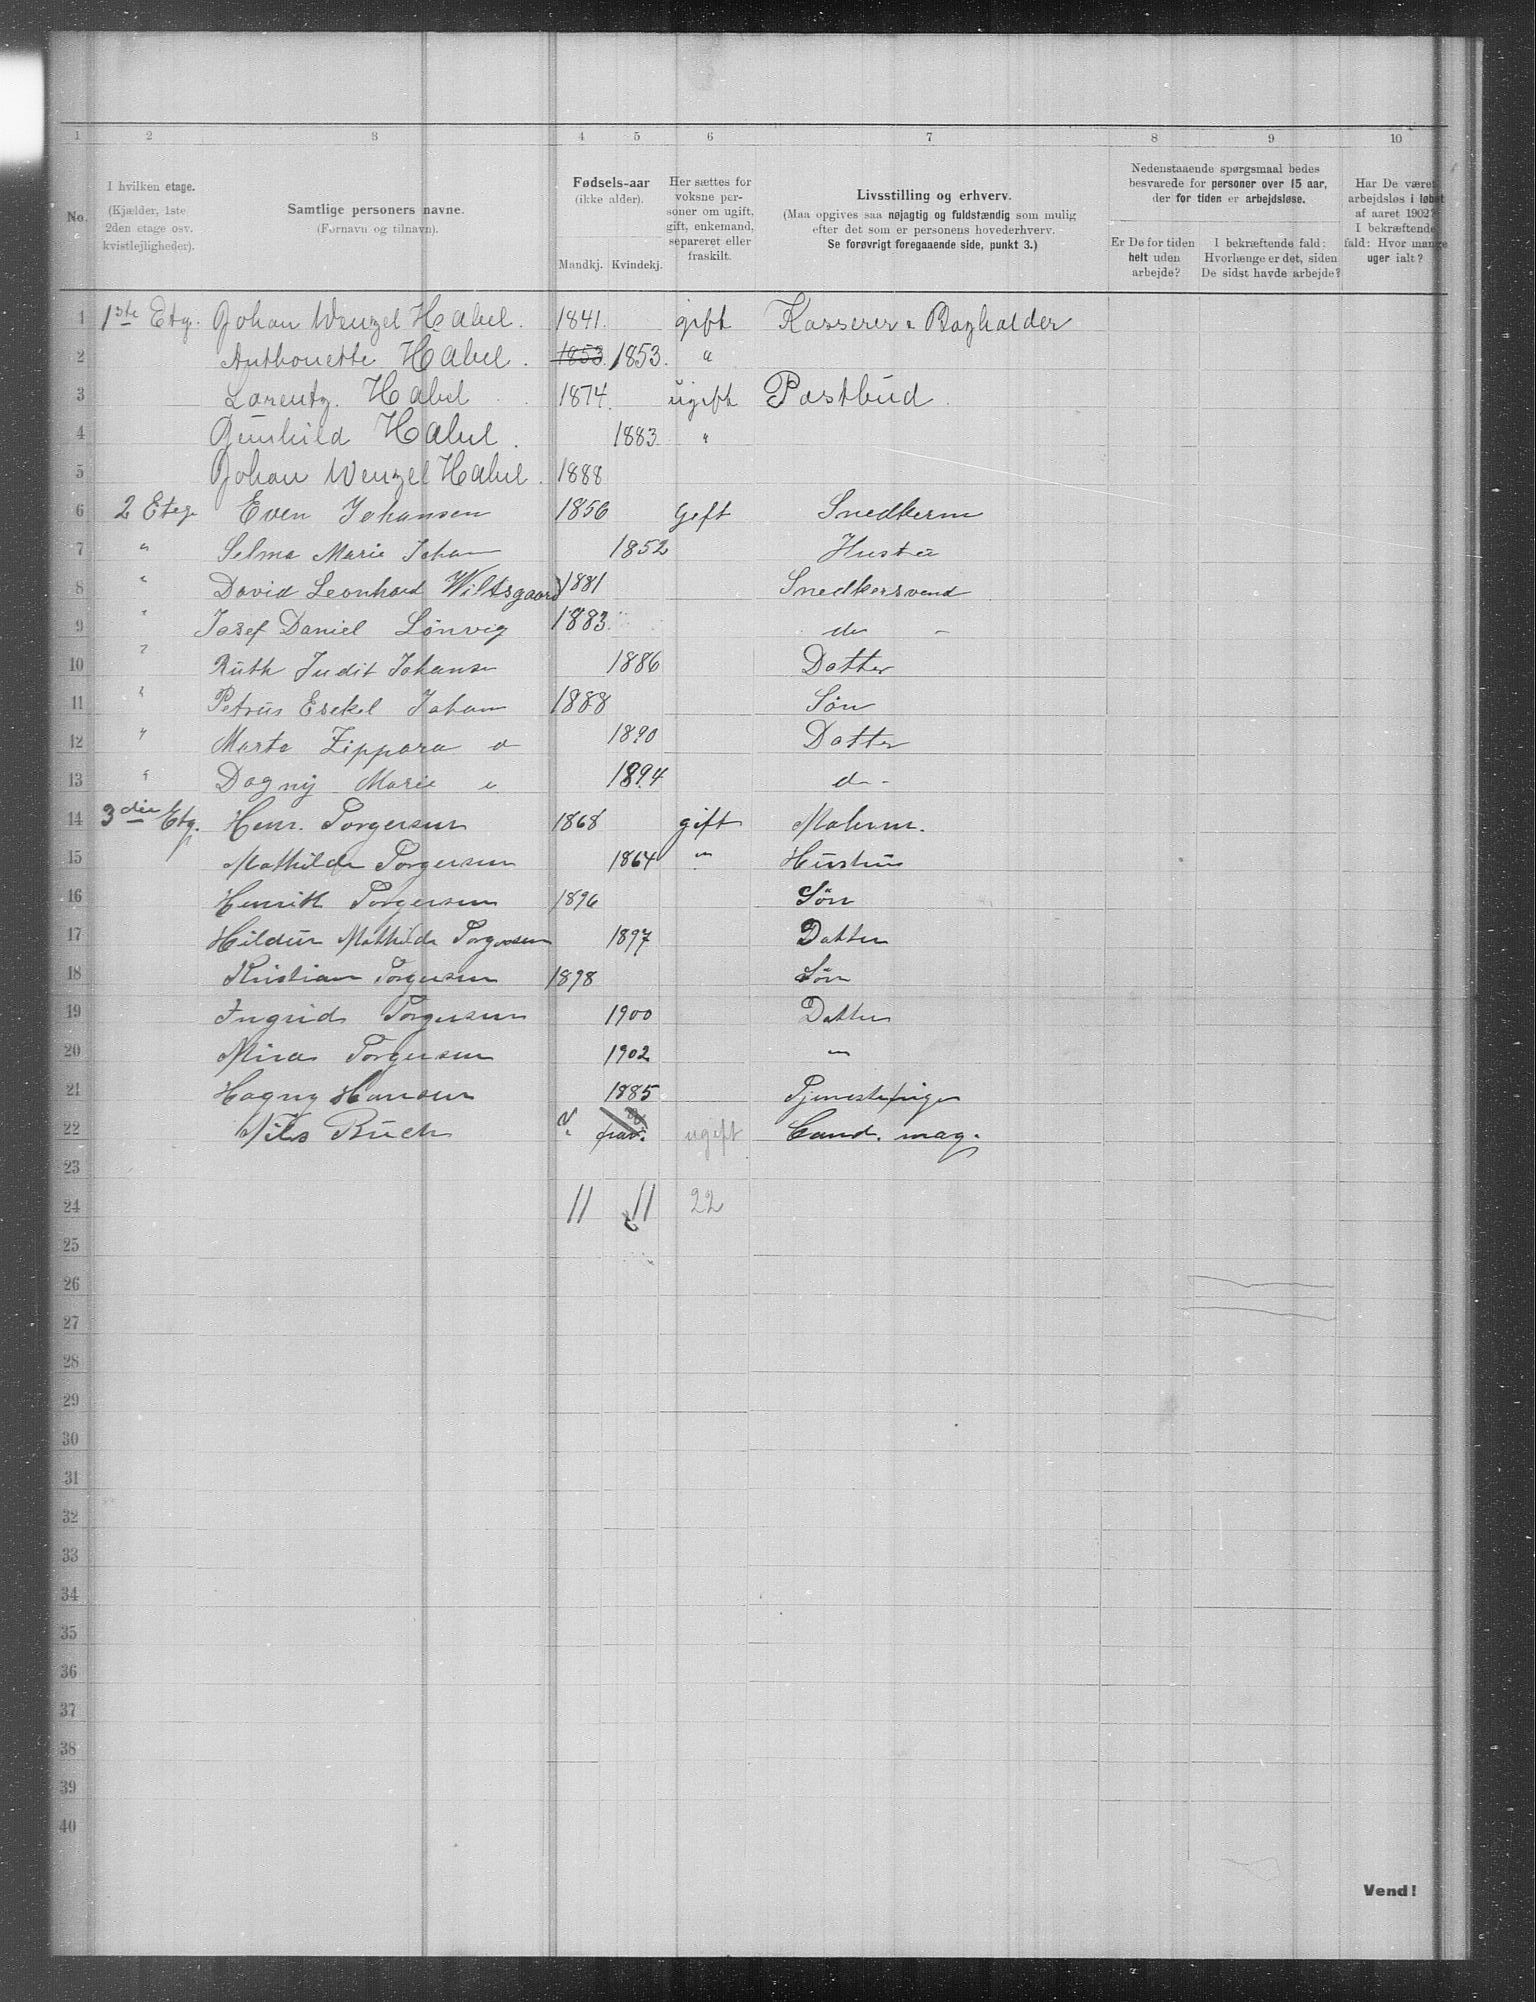 1 2 3 4 5 6 7 8 9 10
No. I hvilken etage. (Kjælder, 1ste 2den etage osv. kvistlejligheder). Samtlige personers navne. (Fornavn og tilnavn). Fødsels-aar (ikke alder). Mandkj. Kvindekj. Her sættes for voksne personer om ugift, gift, enkemand, separeret eller fraskilt. Livsstilling og erhverv. (Maa opgives saa nøjagtig og fuldstændig som mulig efter det som er personens hovederhverv. Se forøvrigt foregaaende side, punkt 3.) Nedenstaaende spørgsmaal bedes besvarede for personer over 15 aar, der for tiden er arbejdsløse. Er De for tiden helt uden arbejde? I bekræftende fald: Hvorlænge er det, siden De sidst havde arbejde? Har De været arbejdsløs i løbet af aaret 1902? I bekræftende fald: Hvor mange uger ialt?
1 1ste Etg. Johan Wenzel Habel. 1841. gift Kasserer & Bogholder
2 Anthonette Habel. 1853. 1853. "
3 Lorentz. Habel 1874. ugift Postbud.
4 Gunhild Habel. 1883 "
5 Johan Wenzel Habel. 1888
6 2 Etg. Even Johansen 1856 Gift Snedkerm
7 " Selma Marie Johan 1852 Hustru
8 " David Leonhard Wiltsgaard 1881 Snedkersvend
9 " Josef Daniel Lönvig 1883. do -
10 " Ruth Judit Johansn 1886 Datter
11 " Petrus Esekel Johan 1888 Søn
12 " Marta Zippora " 1890 Datter
13 " Dagny Marie " 1894 do -
14 3die Etg. Henr. Torgersen 1868 gift Malerm.
15 Mathilde Torgersen 1864 " Hustru
16 Henrik Torgersen 1896 Søn
17 Hildur Mathilde Torgersen 1897 Datter
18 Kristian Torgersen 1898 Søn
19 Ingrid Torgersen 1900 Datter
20 Mina Torgersen 1902 "
21 Hagny Hansen 1885 Tjenestepige
22 Nils Buch ugift Cand. mag.
23
24 11 11 22
25
26
27
28
29
30
31
32
33
34
35
36
37
38
39
40
Vend!